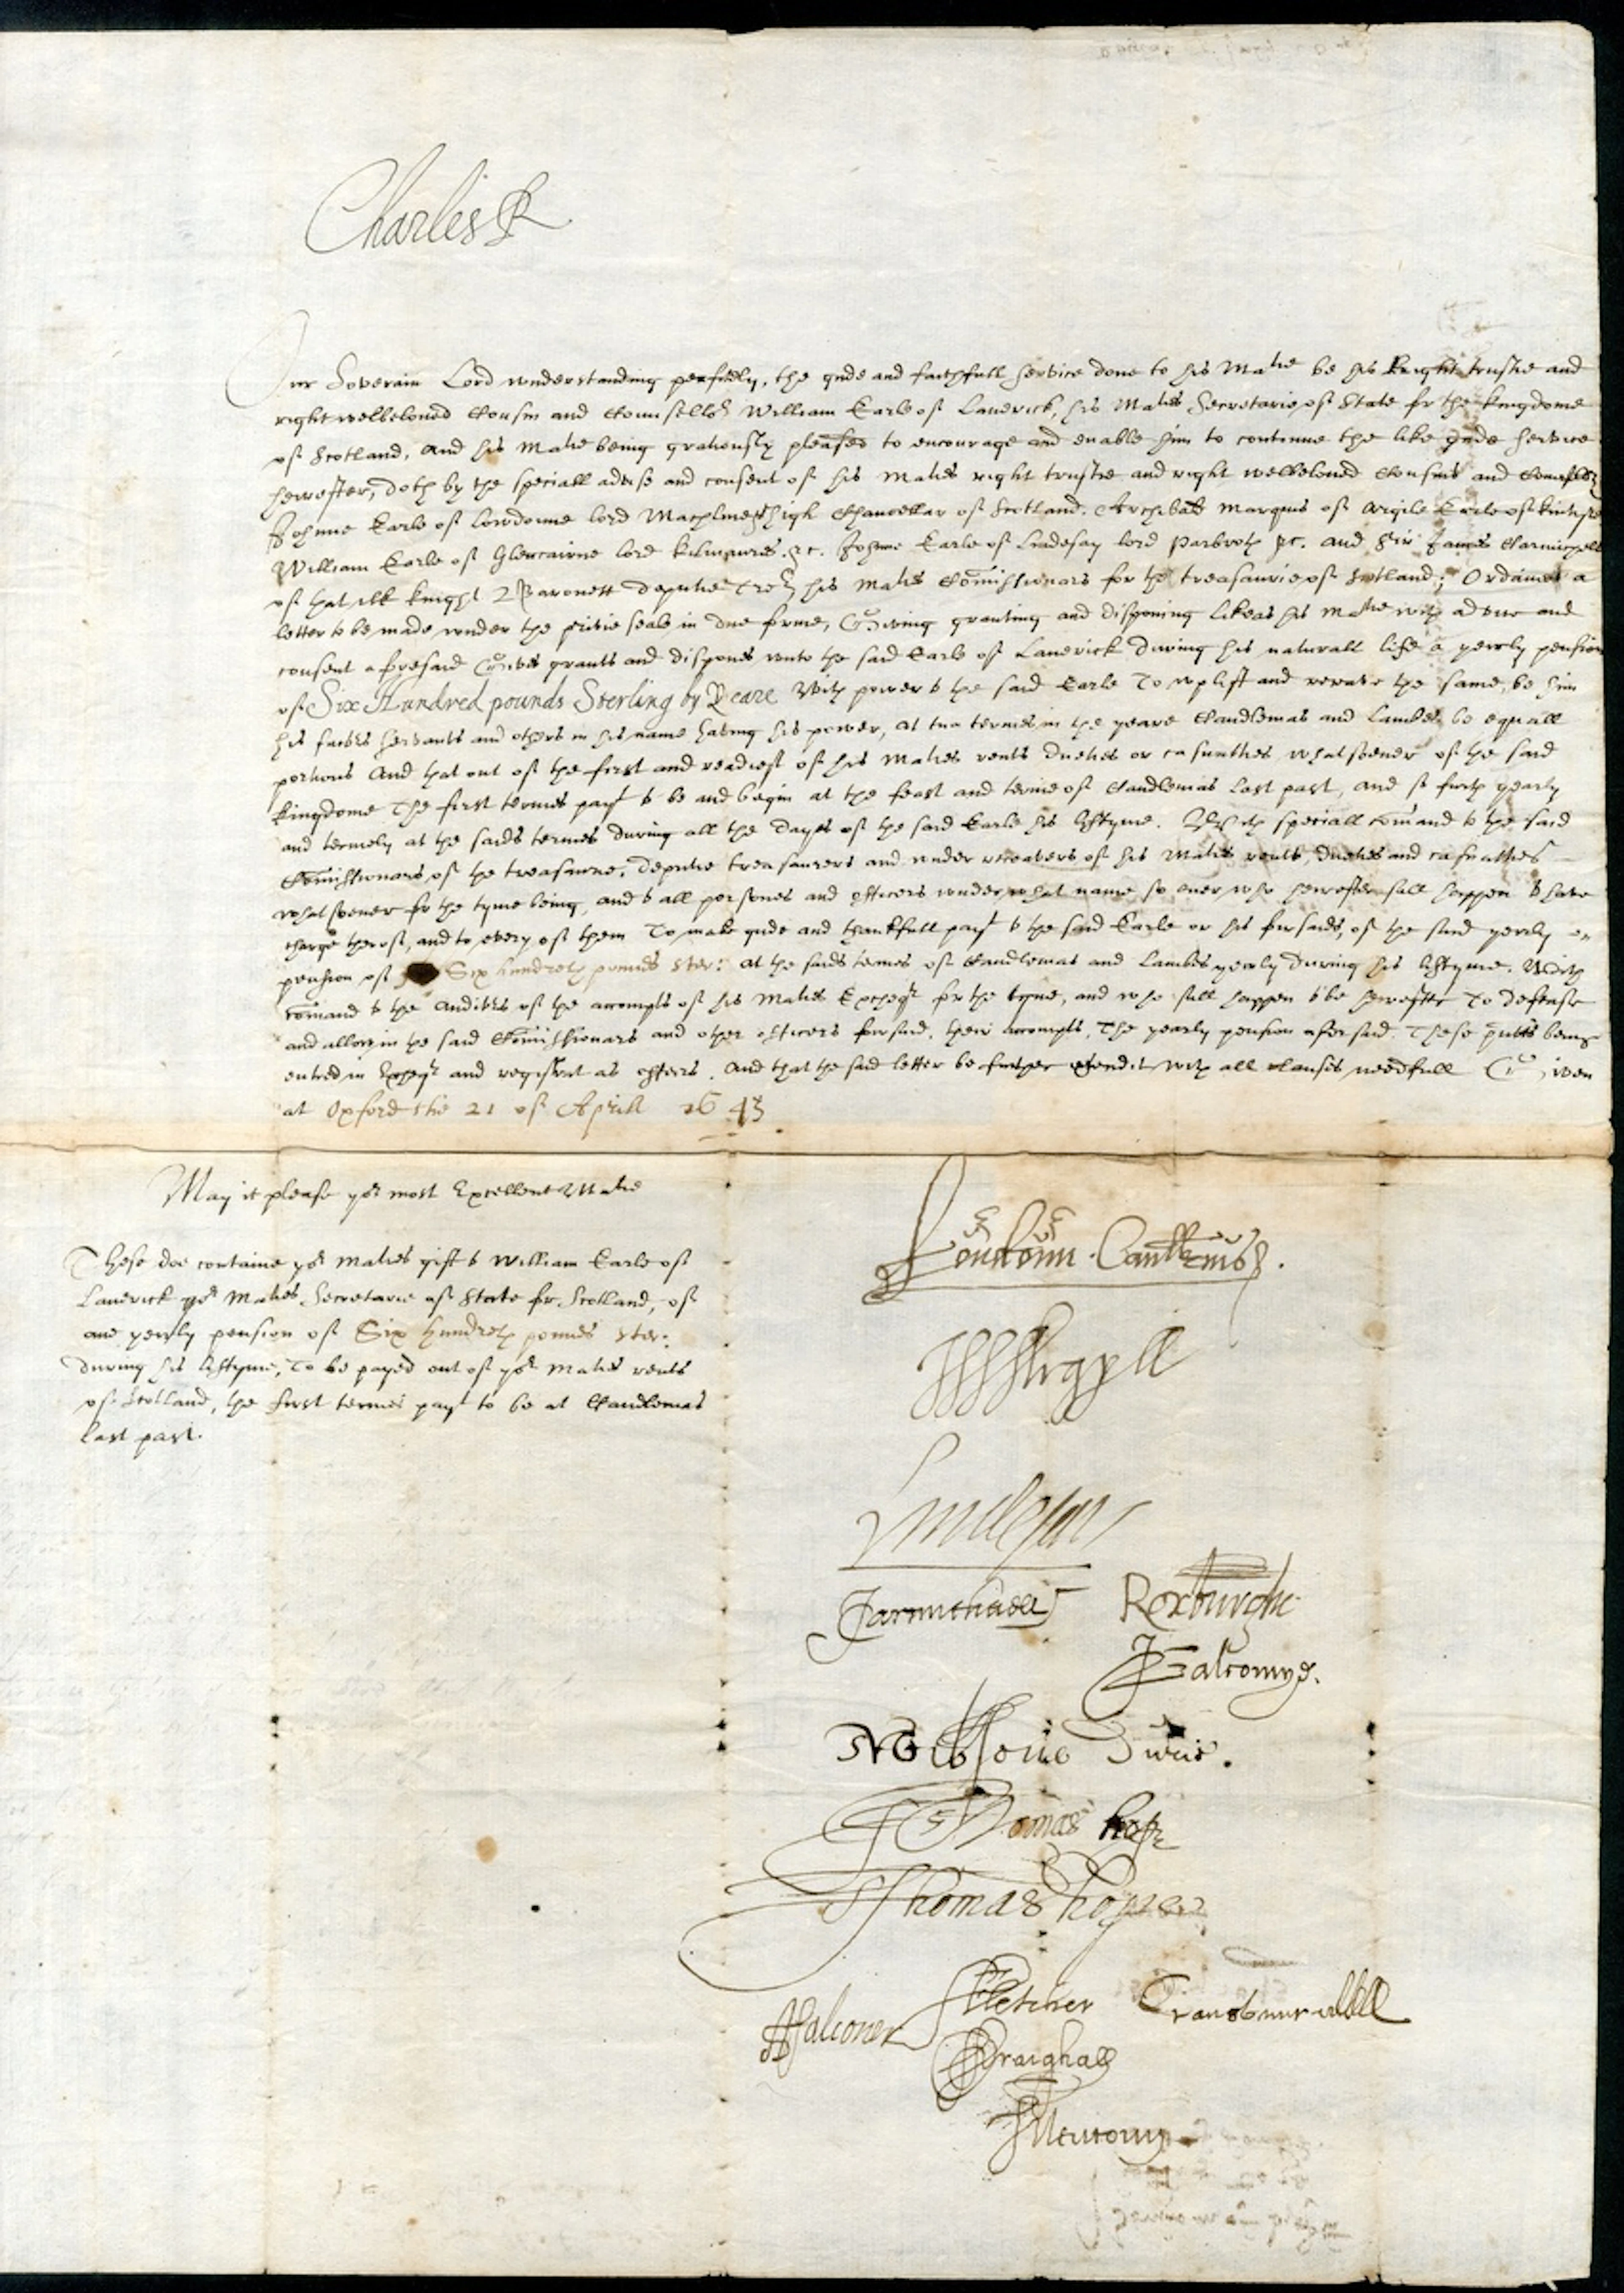 Charles R
Our Soverain Lord understanding perfectly, the gude and faithfull service done to his Matie be his Right trustie and
right wellbeloved Cousin and Counsellor William Earle of Lanerick, his Maties Secretarie of State for the kingdome
of Scotland, And his Matie being gratiously pleased to encourage and enable him to continue the like gude service
herefter, doth by the speciall advise and consent of his Maties right trustie and right wellbeloved Cousins and
Johnne Earle of Lowdoune lord high Chancellar of Scotland. Archibald Marques of Argile Earle of Kintyre
William Earle of Glencairne lord Kilmaures &c. Johnne Earle of Lindesay lord Parbroth &c. and Sir James Carmichell
of that ilk knight & Baronett deputie his Maties Comissionars for the treasaurie of Scotland; Ordaines a
letter to be made under the privie seale in due forme, Giveing granting and disponing likeas his Matie with advice and
consent aforesaid Gives grants and dispones unto the said Earle of Lanerick during his naturall life a yeerly pension
of Six Hundred pounds Sterling by Yeare With power to the said Earle To uplift and receave the same, be him
his factors servants and others in his name having his power, at tua termes in the yeare Candlemas and Lambes be equall
portions And that out of the first and readiest of his Maties rents dueties or casualties whatsoever of the said
kingdome The first termes payt to be and begin at the feast and terme of Candlemas last past, and so furth yearly
and termely at the saids termes during all the dayes of the said Earle his lyftyme. With speciall comand to the said
Comissionars of the treasaurie, deputie treasaurers and under receavers of his Maties rents, dueties and casualties
whatsoever for the tyme being, and to all persones and officers under what name so ever who herefter sall happen to have
charge therof, and to every of them To make gude and thankfull payt to the said Earle or his forsaids, of the said yeerly
pension of Six hundreth pounds ster: at the saids termes of Candlemas and Lambes yeerly during his lyftyme. With
comand to the Auditors of the accompts of his Maties Excheqr for the tyme, and who sall happen to be herefter To defease
and allow in the said Comissionars and other officers forsaid, their accompts, The yearly pension aforsaid These being
entred in Excheqr and registrat as effeirs. And that the said letter be further extendit with all clauses needfull Given
at Oxford the 21 of Aprill 1643
May it please yor most Excellent Matie
These doe containe yor Maties gift to William Earle of
Lanerick yor Maties Secretarie of State for Scotland, of
ane yeerly pension of Six hundreth pounds ster:
during his lyftyme, To be payed out of yor Maties rents
of Scotland, the first termes payt to be at Candlemas
last past.
Loudoun Cancellarius.
Argyll
Lindesay
JCarmichaell Roxburghe
Falconer
Thomas hope
SThomas hope
AFalconer JFletcher
Craighall